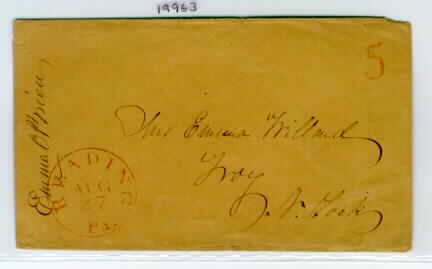 19963
5
Emma O'Brien
Mrs Emma Willard
Troy
N. York
READING
AUG
27
Pa.